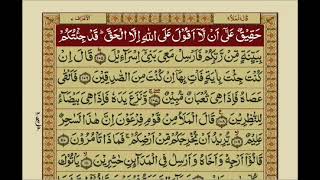 قَالَ الْمَلَاُ ٩ الْاَعْرَاف ٧
حَقِيْقٌ عَلٰٓى اَنْ لَّاۤ اَقُوْلَ عَلَى اللّٰهِ اِلَّا الْحَقَّ ؕ قَدْ جِئْتُكُمْ
بِبَيِّنَةٍ مِّنْ رَّبِّكُمْ فَاَرْسِلْ مَعِىَ بَنِىْۤ اِسْرَآءِيْلَ ؕ‏ قَالَ اِنْ
كُنْتَ جِئْتَ بِاٰيَةٍ فَاْتِ بِهَاۤ اِنْ كُنْتَ مِنَ الصّٰدِقِيْنَ فَاَلْقٰى
عَصَاهُ فَاِذَا هِىَ ثُعْبَانٌ مُّبِيْنٌ ۖ وَّنَزَعَ يَدَهٗ فَاِذَا هِىَ بَيْضَآءُ
لِلنّٰظِرِيْنَ قَالَ الْمَلَاُ مِنْ قَوْمِ فِرْعَوْنَ اِنَّ هٰذَا لَسٰحِرٌ
عَلِيْمٌ ۙ يُّرِيْدُ اَنْ يُّخْرِجَكُمْ مِّنْ اَرْضِكُمْ ۚ فَمَاذَا تَاْمُرُوْنَ
قَالُوْۤا اَرْجِهْ وَاَخَاهُ وَاَرْسِلْ فِى الْمَدَآئِنِ حٰشِرِيْنَ ۙ يَاْتُوْكَ